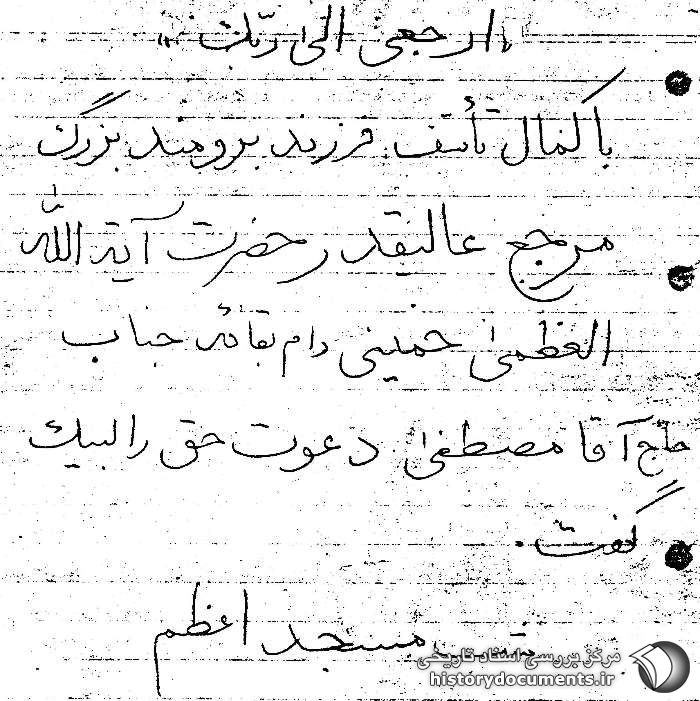 «ارجعی الی ربک»
با کمال تأسف فرزند برومند بزرگ
مرجع عالیقدر حضرت آیة الله
العظمی خمینی دام بقائه جناب
حاج آقا مصطفی دعوت حق را لبیک
گفت.
مسجد اعظم
مرکز بررسی اسناد تاریخی
historydocuments.ir